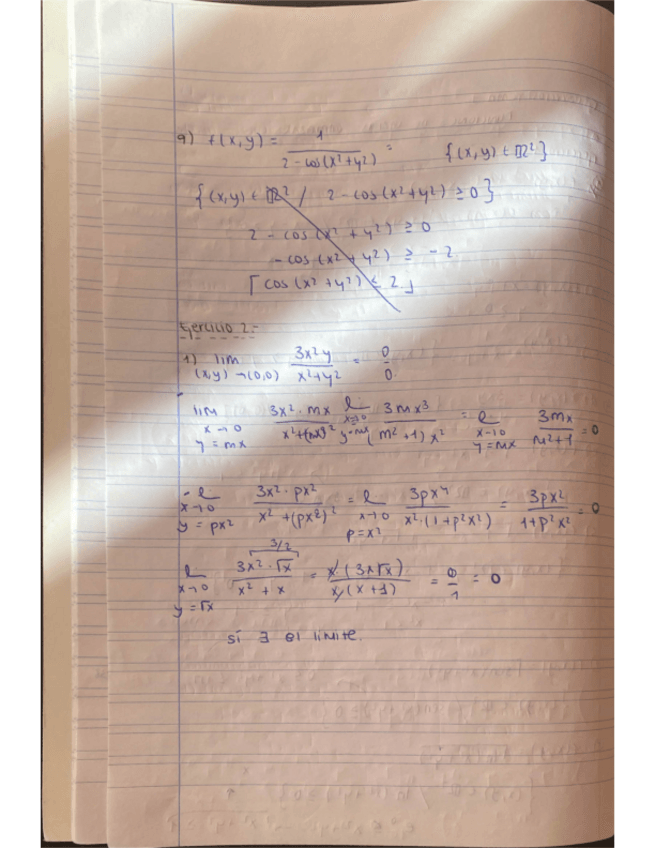 9) f(x,y) = 1 / (2 - cos(x² + y²)) = {(x,y) ∈ ℝ²}
{(x,y) ∈ ℝ² / 2 - cos(x² + y²) ≥ 0}
2 - cos(x² + y²) ≥ 0
- cos(x² + y²) ≥ -2
⌈cos(x² + y²) ≤ 2⌋
Ejercicio 2:-
1) lim (x,y)→(0,0) 3x²y / (x²+y²) = 0/0.
lim x→0 y=mx 3x²·mx / (x²+(mx)²) l x→0 y=mx 3mx³ / (m²+1)x² = l x→0 y=mx 3mx / (m²+1) = 0
- l x→0 y=px² 3x²·px² / (x²+(px²)²) = l x→0 p=x² 3px⁴ / (x²·(1+p²x²)) = 3px² / (1+p²x²) = 0
3/2
l x→0 y=√x 3x²·√x / (x² + x) = x(3x√x) / (x(x+1)) = 0/1 = 0
sí ∃ el límite.